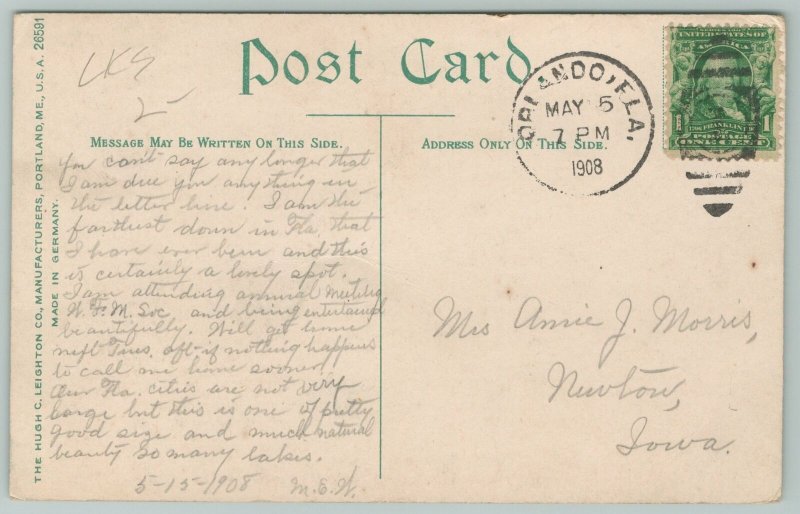 LKS
2-
Post Card.
MESSAGE MAY BE WRITTEN ON THIS SIDE.
ADDRESS ONLY ON THIS SIDE.
THE HUGH C. LEIGHTON CO., MANUFACTURERS, PORTLAND, ME., U.S.A. 26591
MADE IN GERMANY.
You can't say any longer that
I am due you anything in
the letter line. I am the
farthest down in Fla, that
I have ever been and this
is certainly a lovely spot.
I am attending annual meeting
W. F. M. Soc and being entertained
beautifully. Will get home
next Tues. aft- if nothing happens
to call me home sooner.
Our Fla. cities are not very
large but this is one of pretty
good size and much natural
beauty so many lakes.
5-15-1908 M.E.W.
ORLANDO, FLA.
MAY 5
7 PM
1908
UNITED STATES OF
AMERICA
1 FRANKLIN 1
POSTAGE
ONE CENT
Mrs Annie J. Morris,
Newton,
Iowa.